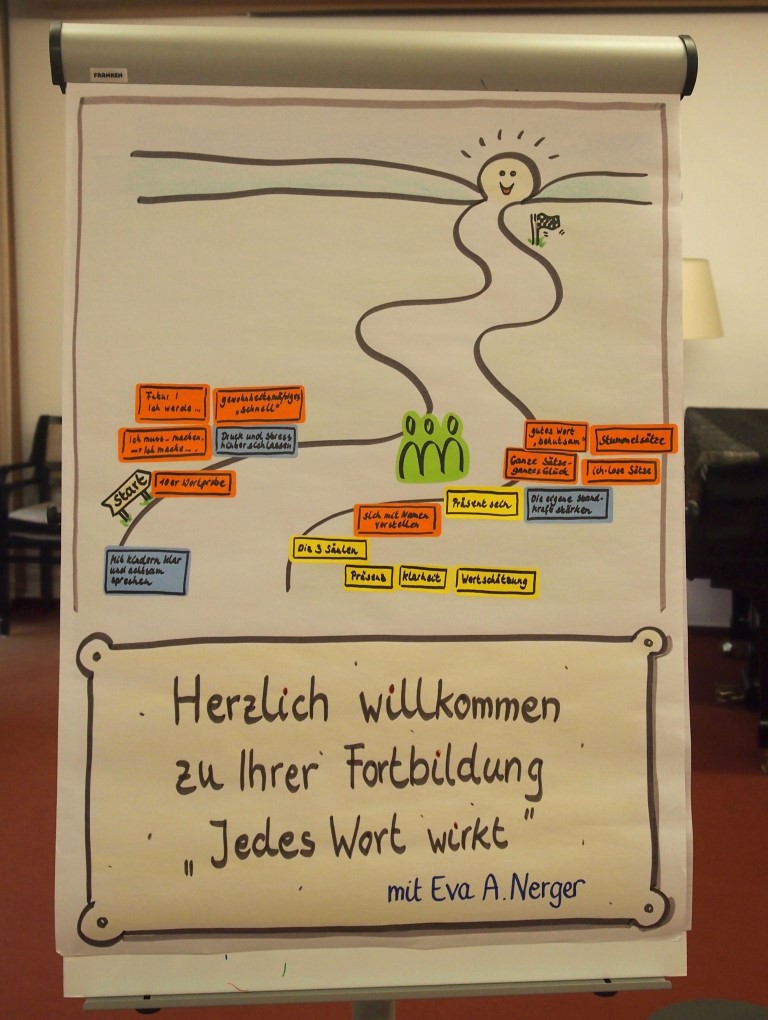 FRANKEN
Futur I
Ich werde...
gewohnheitsmäßiges
"schnell"
Ich muss - machen.
→ Ich mache...
Druck und Stress
hinter sich lassen
Start
10er Wortprobe
Mit Kindern klar
und achtsam
sprechen
gutes Wort
"behutsam"
Stummelsätze
Ganze Sätze-
ganzes Glück
Ich-Lose Sätze
Präsent sein
Die eigene Stand-
kraft stärken
sich mit Namen
vorstellen
Die 3 Säulen
Präsenz
Klarheit
Wertschätzung
Herzlich willkommen
zu Ihrer Fortbildung
„Jedes Wort wirkt"
mit Eva A. Nerger